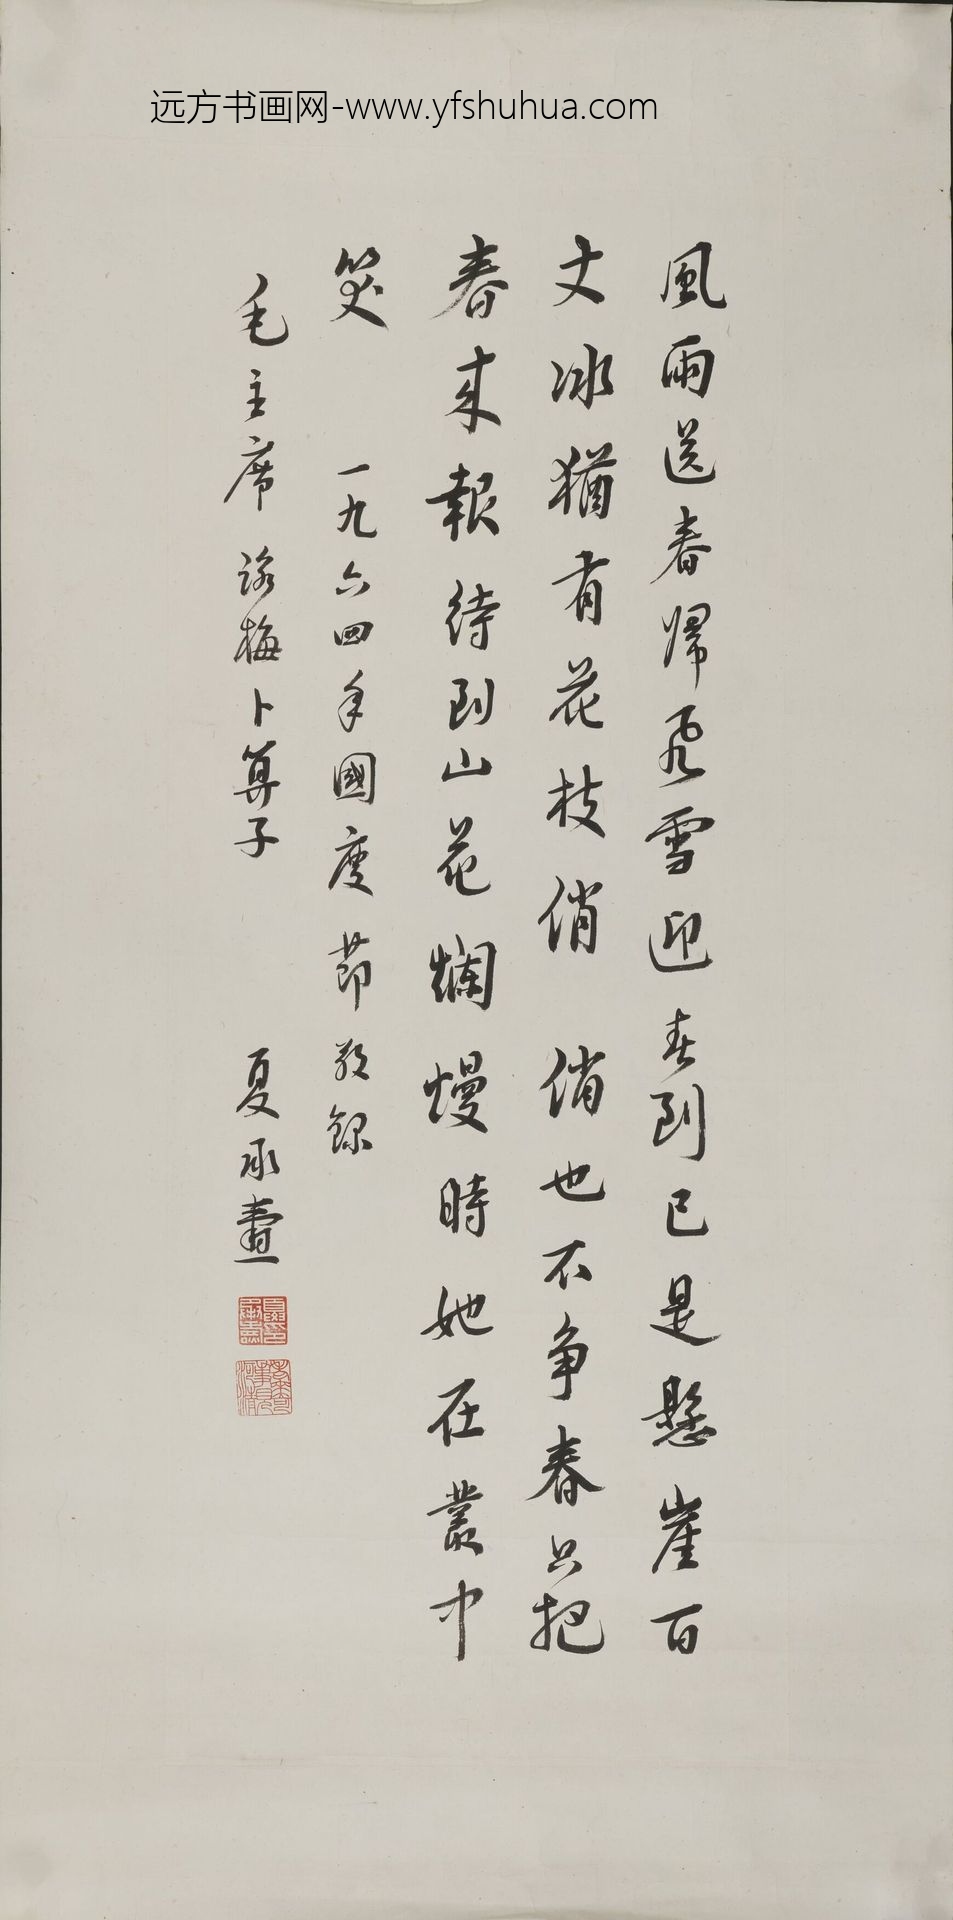 远方书画网-www.yfshuhua.com
風雨送春歸飛雪迎春到已是懸崖百
丈冰猶有花枝俏俏也不争春只把
春来報待到山花爛熳時她在叢中
笑 一九六四年國慶節敬録
毛主席詠梅卜算子 夏承燾